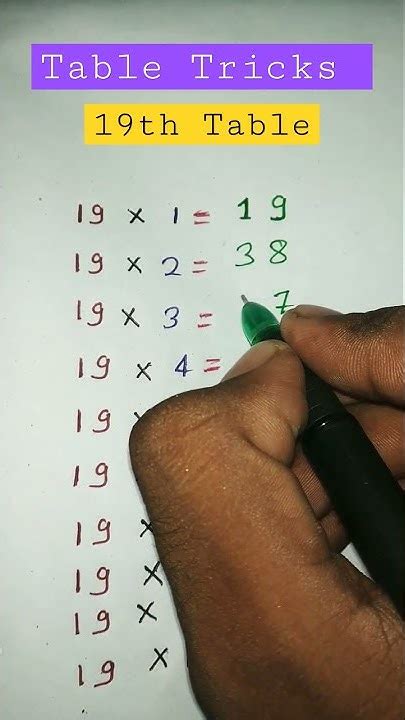 Table Tricks
19th Table
19 × 1 = 19
19 × 2 = 38
19 × 3 = 7
19 × 4 =
19
19
19 ×
19 ×
19 ×
19 ×